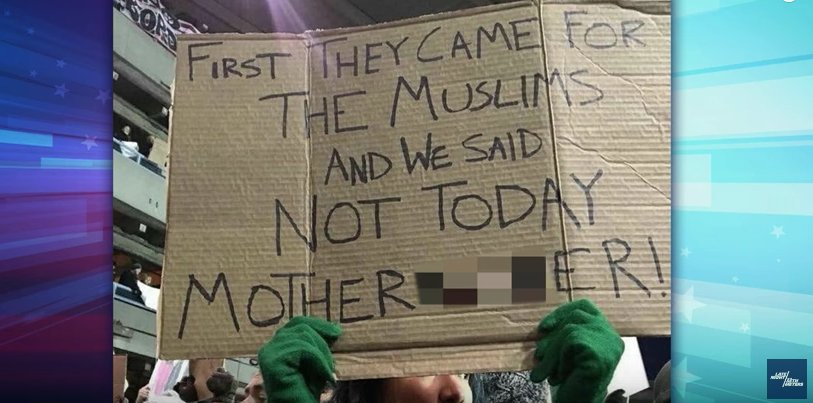 FIRST THEY CAME FOR
THE MUSLIMS
AND WE SAID
NOT TODAY
MOTHER ER!
LATE
NIGHT
SETH
MEYERS